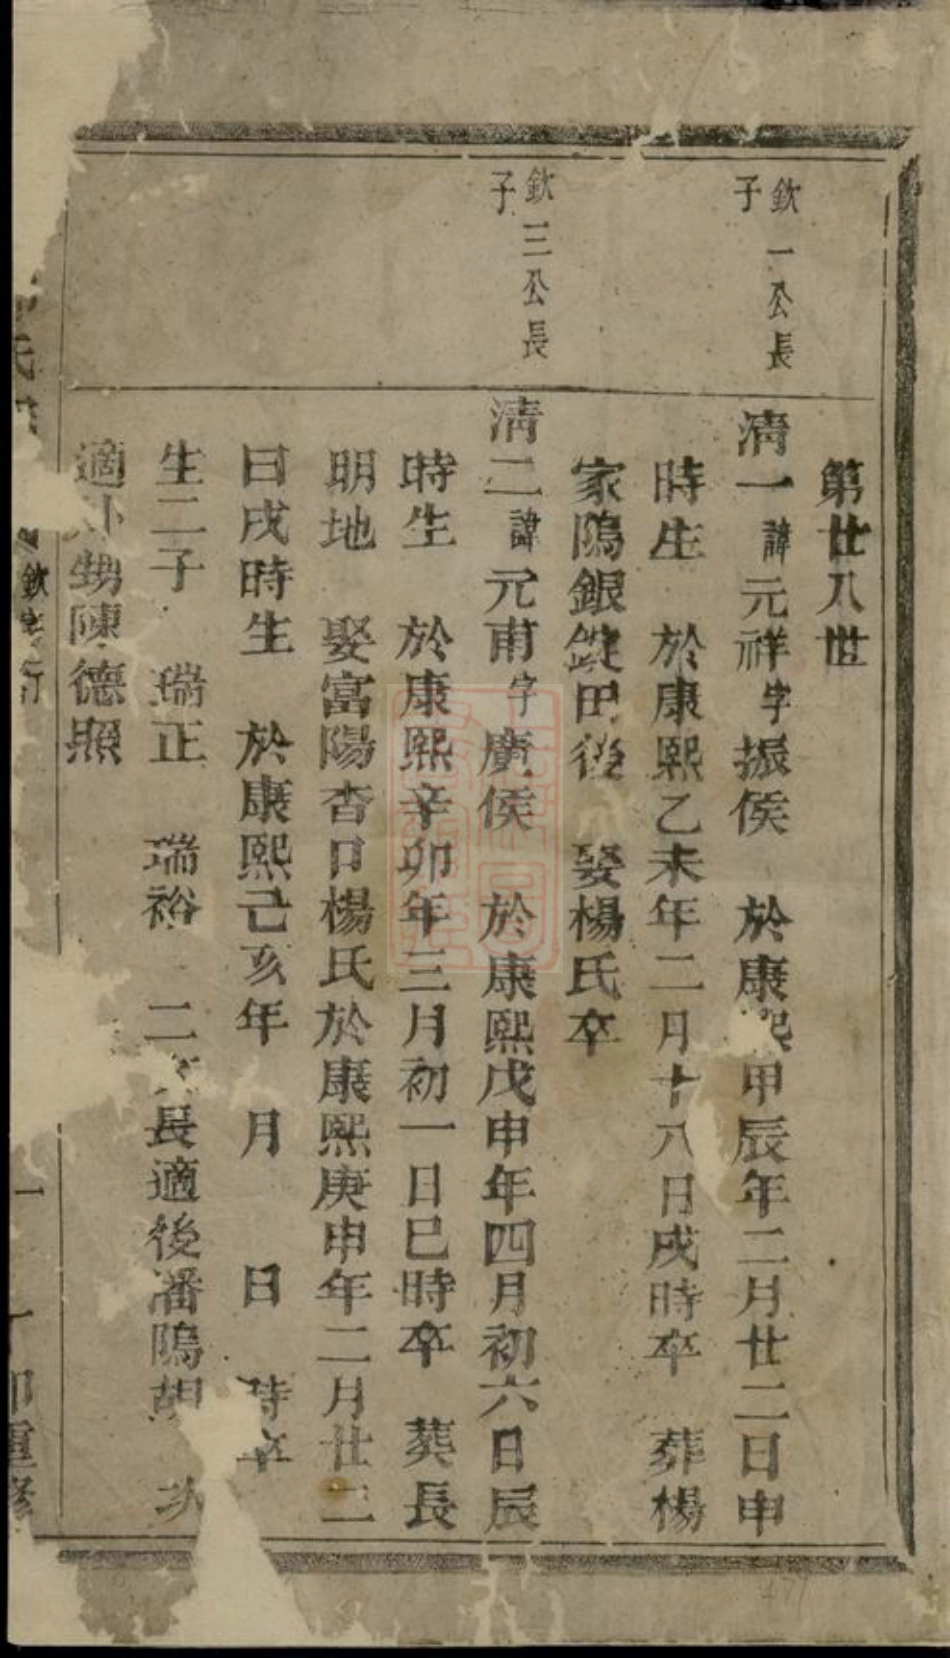 第廿八世
欽一公長
子
清一諱元祥字振侯　於康熙甲辰年二月廿二日申
時生　於康熙乙未年二月十八日戌時卒　葬楊
家隖銀錠田後　娶楊氏卒
欽三公長
子
清二諱元甫字廣侯　於康熙戊申年四月初六日辰
時生　於康熙辛卯年三月初一日巳時卒　葬長
明地　娶富陽杏口楊氏於康熙庚申年二月廿二
日戌時生　於康熙己亥年　月　日　時卒
生二子　瑞正　瑞裕　二　長適後潘隖胡　次
適外甥陳德照
氏
欽字行
重修